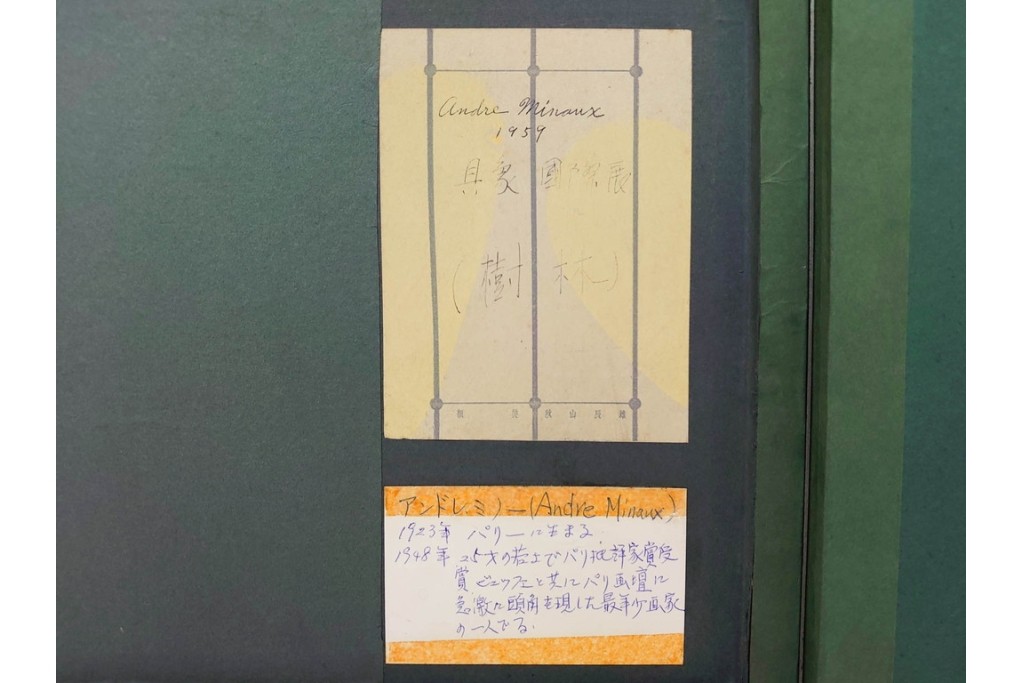 Andre Minaux
1959
具象 國際展
(樹 林)
秋山長雄
アンドレ・ミノー(Andre Minaux)
1923年 パリーに生まる.
1948年 25才の若土でパリ批評家賞受
賞 ビュッフェと共にパリ画壇に
急激に頭角を現した最年少画家
の一人でる.